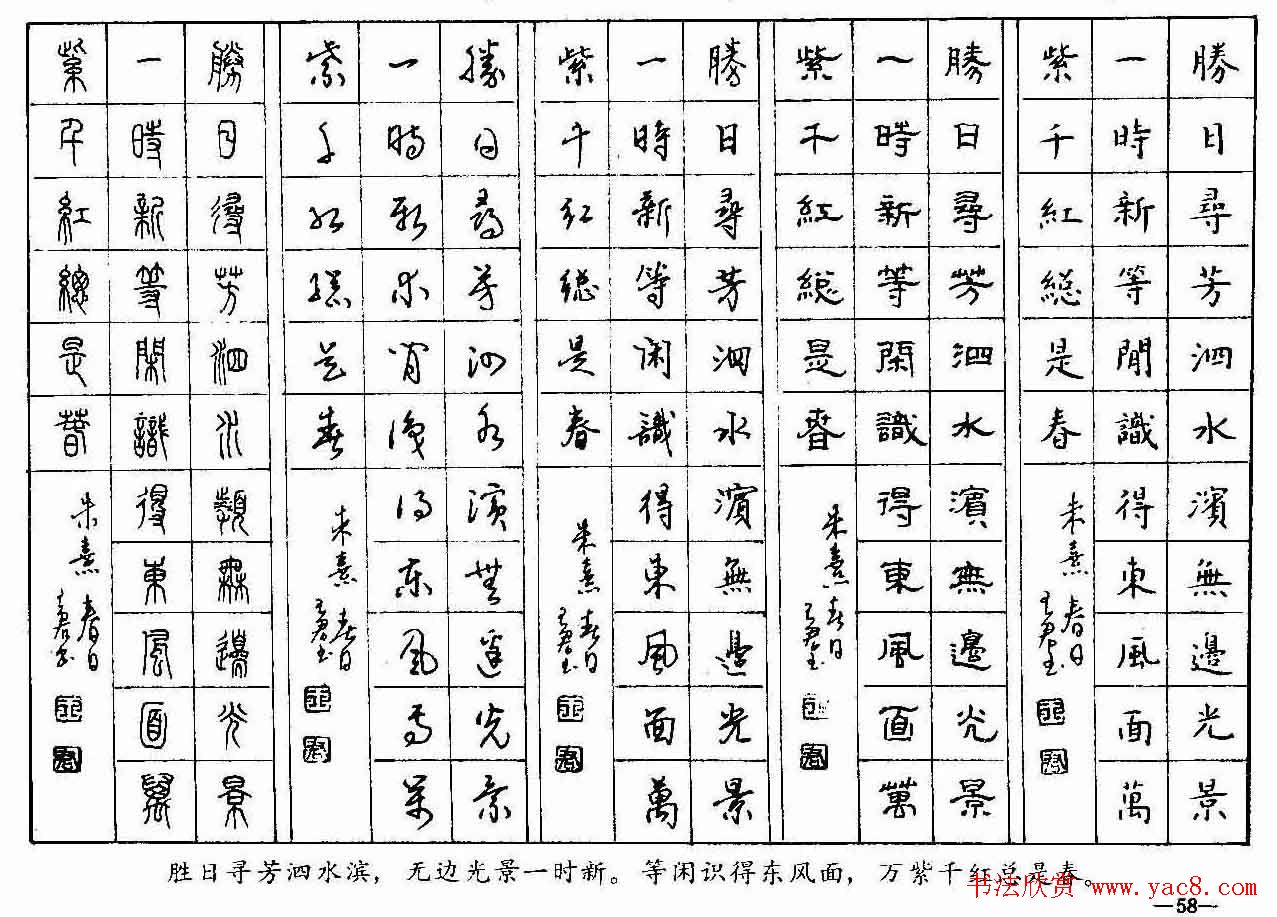 勝日尋芳泗水濱無邊光景
一時新等閒識得東風面萬
紫千紅総是春
朱熹 春日
勝日尋芳泗水濱無邊光景
一時新等閑識得東風面萬
紫千紅総是春
朱熹 春日
勝日尋芳泗水濱無邊光景
一時新等闲識得東風面萬
紫千紅総是春
朱熹 春日
勝日尋芳泗水濱無邊光景
一時新等闲識得東風面萬
紫千紅總是春
朱熹 春日
勝日尋芳泗水瀕無邊光景
一時新等閑識得東風面萬
紫千紅總是春
朱熹 春日
胜日寻芳泗水滨，无边光景一时新。等闲识得东风面，万紫千红总是春。
书法欣赏 www.yac8.com
—58—